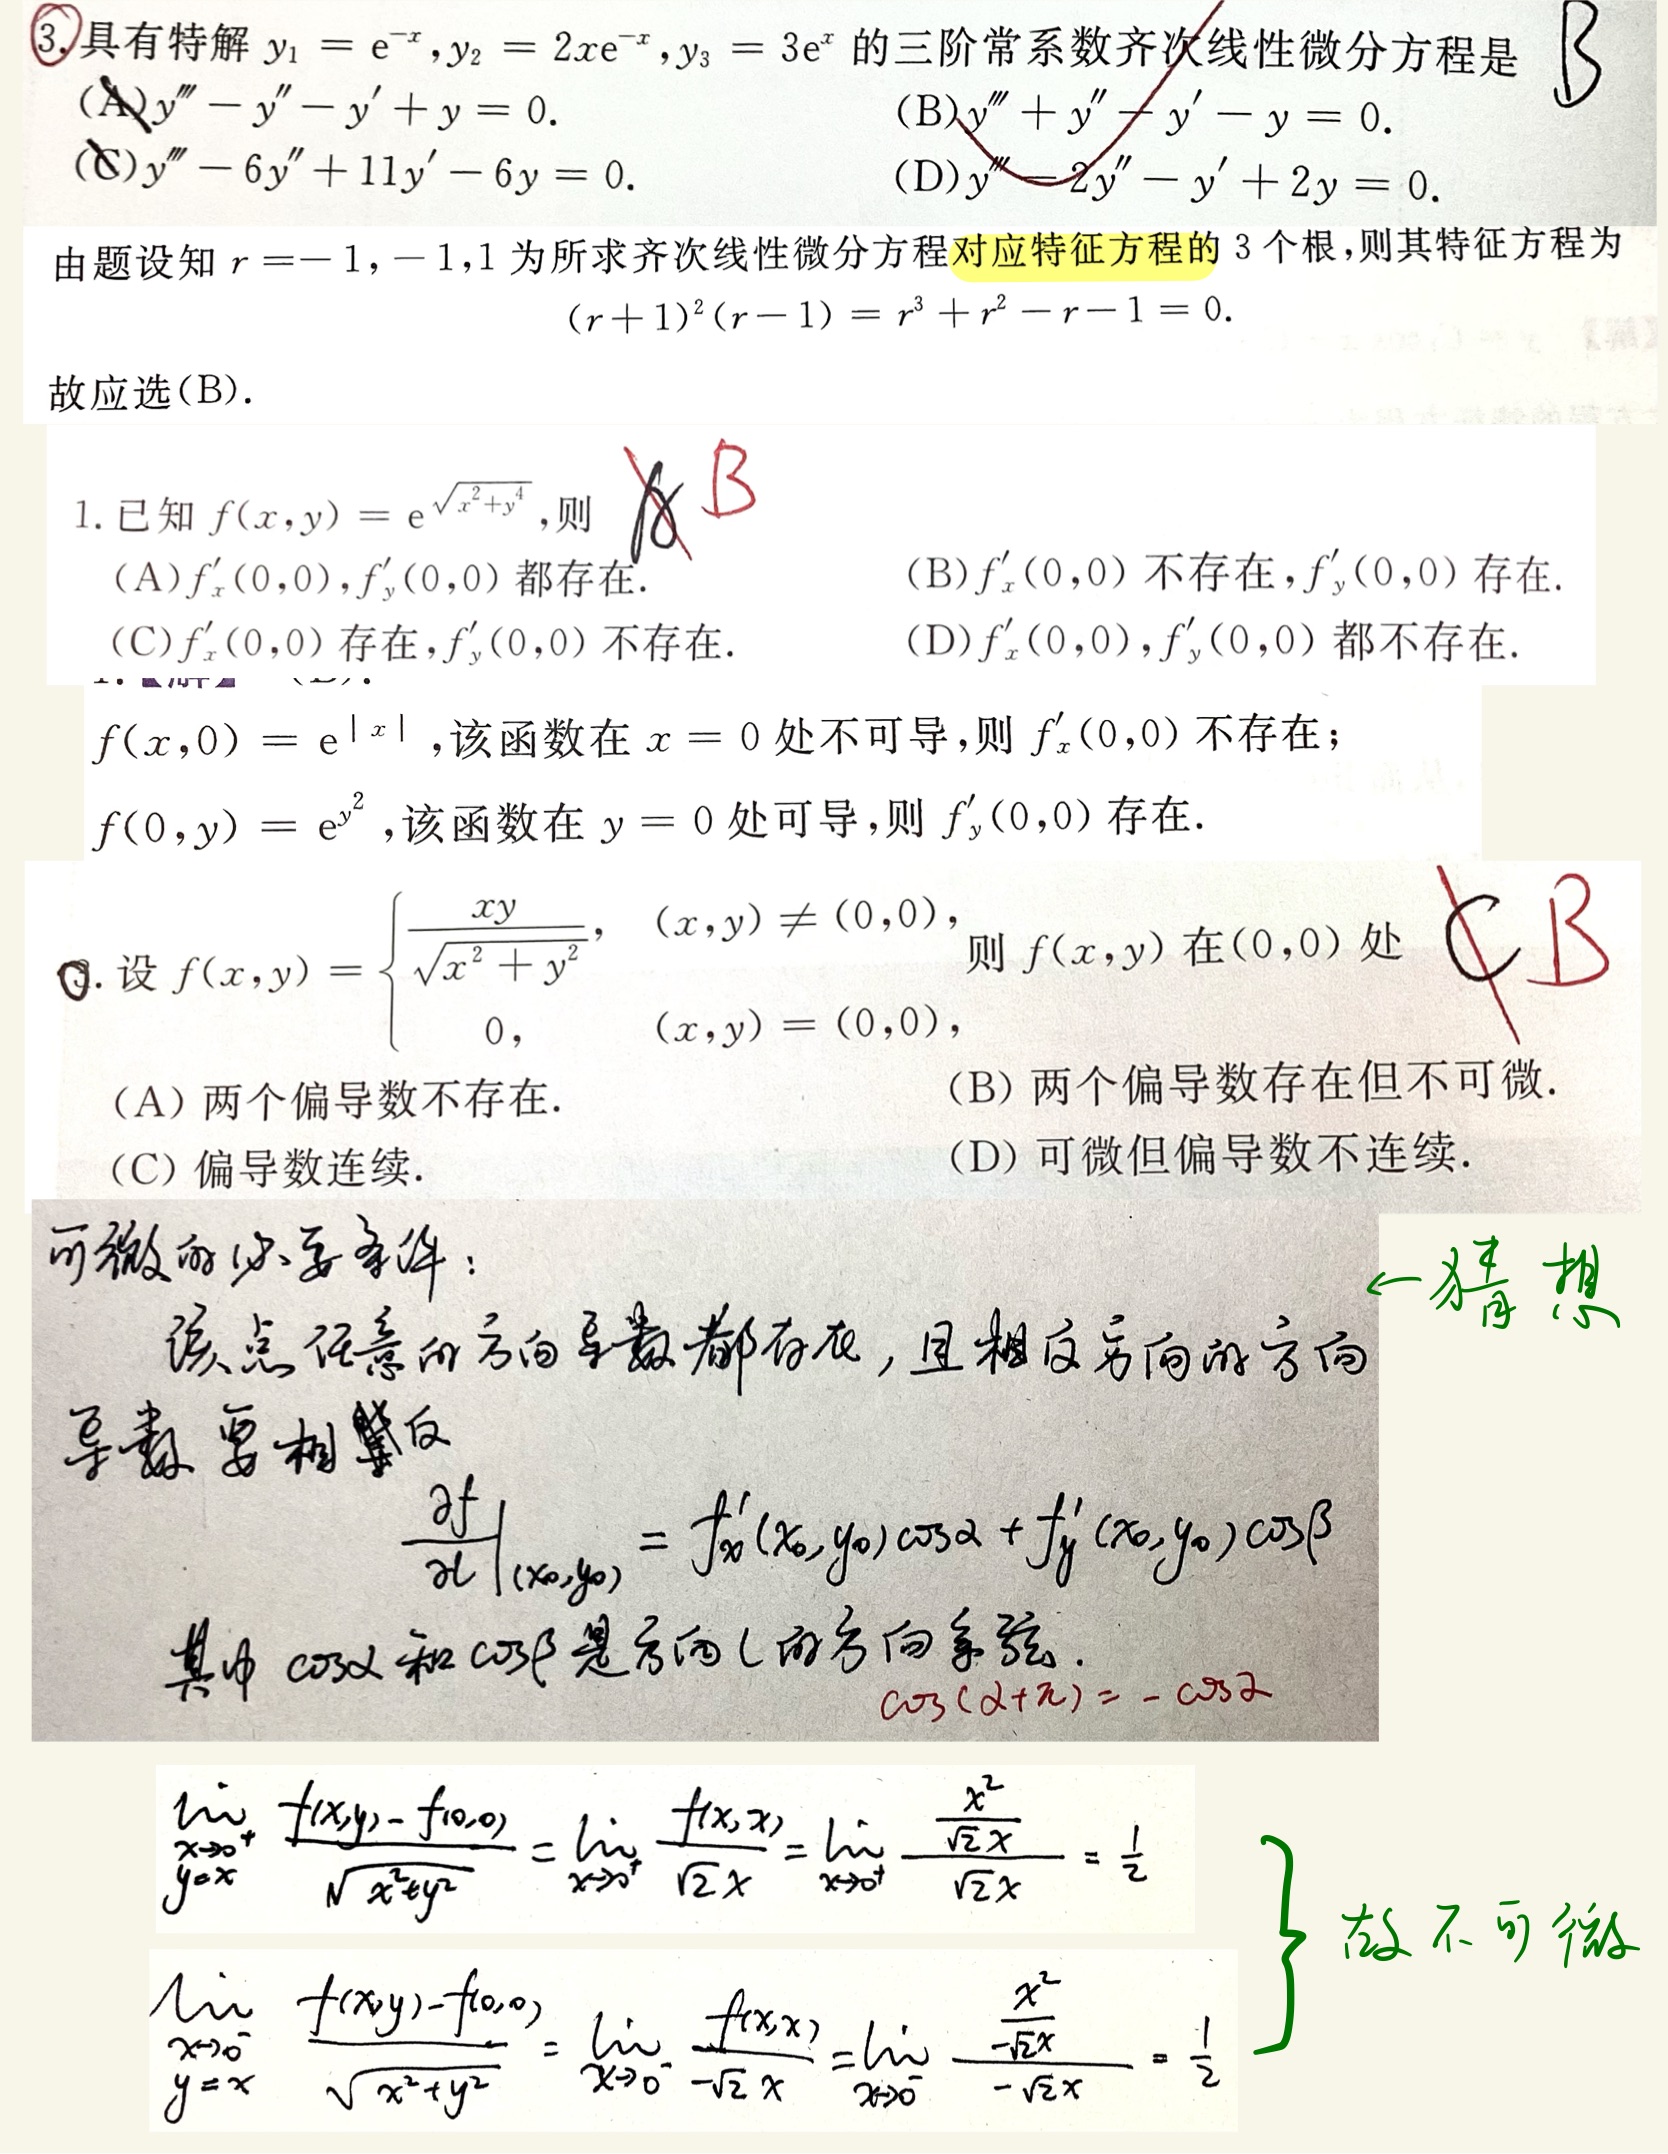 3. 具有特解 y₁ = e⁻ˣ, y₂ = 2xe⁻ˣ, y₃ = 3eˣ 的三阶常系数齐次线性微分方程是 B
(A) y‴ − y″ − y′ + y = 0. (B) y‴ + y″ − y′ − y = 0.
(C) y‴ − 6y″ + 11y′ − 6y = 0. (D) y‴ − 2y″ − y′ + 2y = 0.
由题设知 r = −1, −1, 1 为所求齐次线性微分方程对应特征方程的 3 个根,则其特征方程为
(r + 1)² (r − 1) = r³ + r² − r − 1 = 0.
故应选(B).
1. 已知 f(x,y) = e^{√(x²+y⁴)},则 A B
(A) f′ₓ(0,0), f′ᵧ(0,0) 都存在. (B) f′ₓ(0,0) 不存在, f′ᵧ(0,0) 存在.
(C) f′ₓ(0,0) 存在, f′ᵧ(0,0) 不存在. (D) f′ₓ(0,0), f′ᵧ(0,0) 都不存在.
f(x,0) = e^{|x|},该函数在 x = 0 处不可导,则 f′ₓ(0,0) 不存在;
f(0,y) = e^{y²},该函数在 y = 0 处可导,则 f′ᵧ(0,0) 存在.
3. 设 f(x,y) = { xy/√(x² + y²), (x,y) ≠ (0,0), 0, (x,y) = (0,0), 则 f(x,y) 在(0,0) 处 C B
(A) 两个偏导数不存在. (B) 两个偏导数存在但不可微.
(C) 偏导数连续. (D) 可微但偏导数不连续.
可微的必要条件:
←猜想
该点任意的方向导数都存在,且相反方向的方向
导数要相反
∂f/∂l |(x₀,y₀) = f′ₓ(x₀,y₀)cosα + f′ᵧ(x₀,y₀)cosβ
其中 cosα 和 cosβ 是方向 l 的方向余弦.
cos(α+π) = −cosα
lim_{x→0⁺, y=x} (f(x,y) − f(0,0))/√(x²+y²) = lim_{x→0⁺} f(x,x)/(√2x) = lim_{x→0⁺} (x²/(√2x))/(√2x) = 1/2
故不可微
lim_{x→0⁻, y=x} (f(x,y) − f(0,0))/√(x²+y²) = lim_{x→0⁻} f(x,x)/(−√2x) = lim_{x→0⁻} (x²/(−√2x))/(−√2x) = 1/2